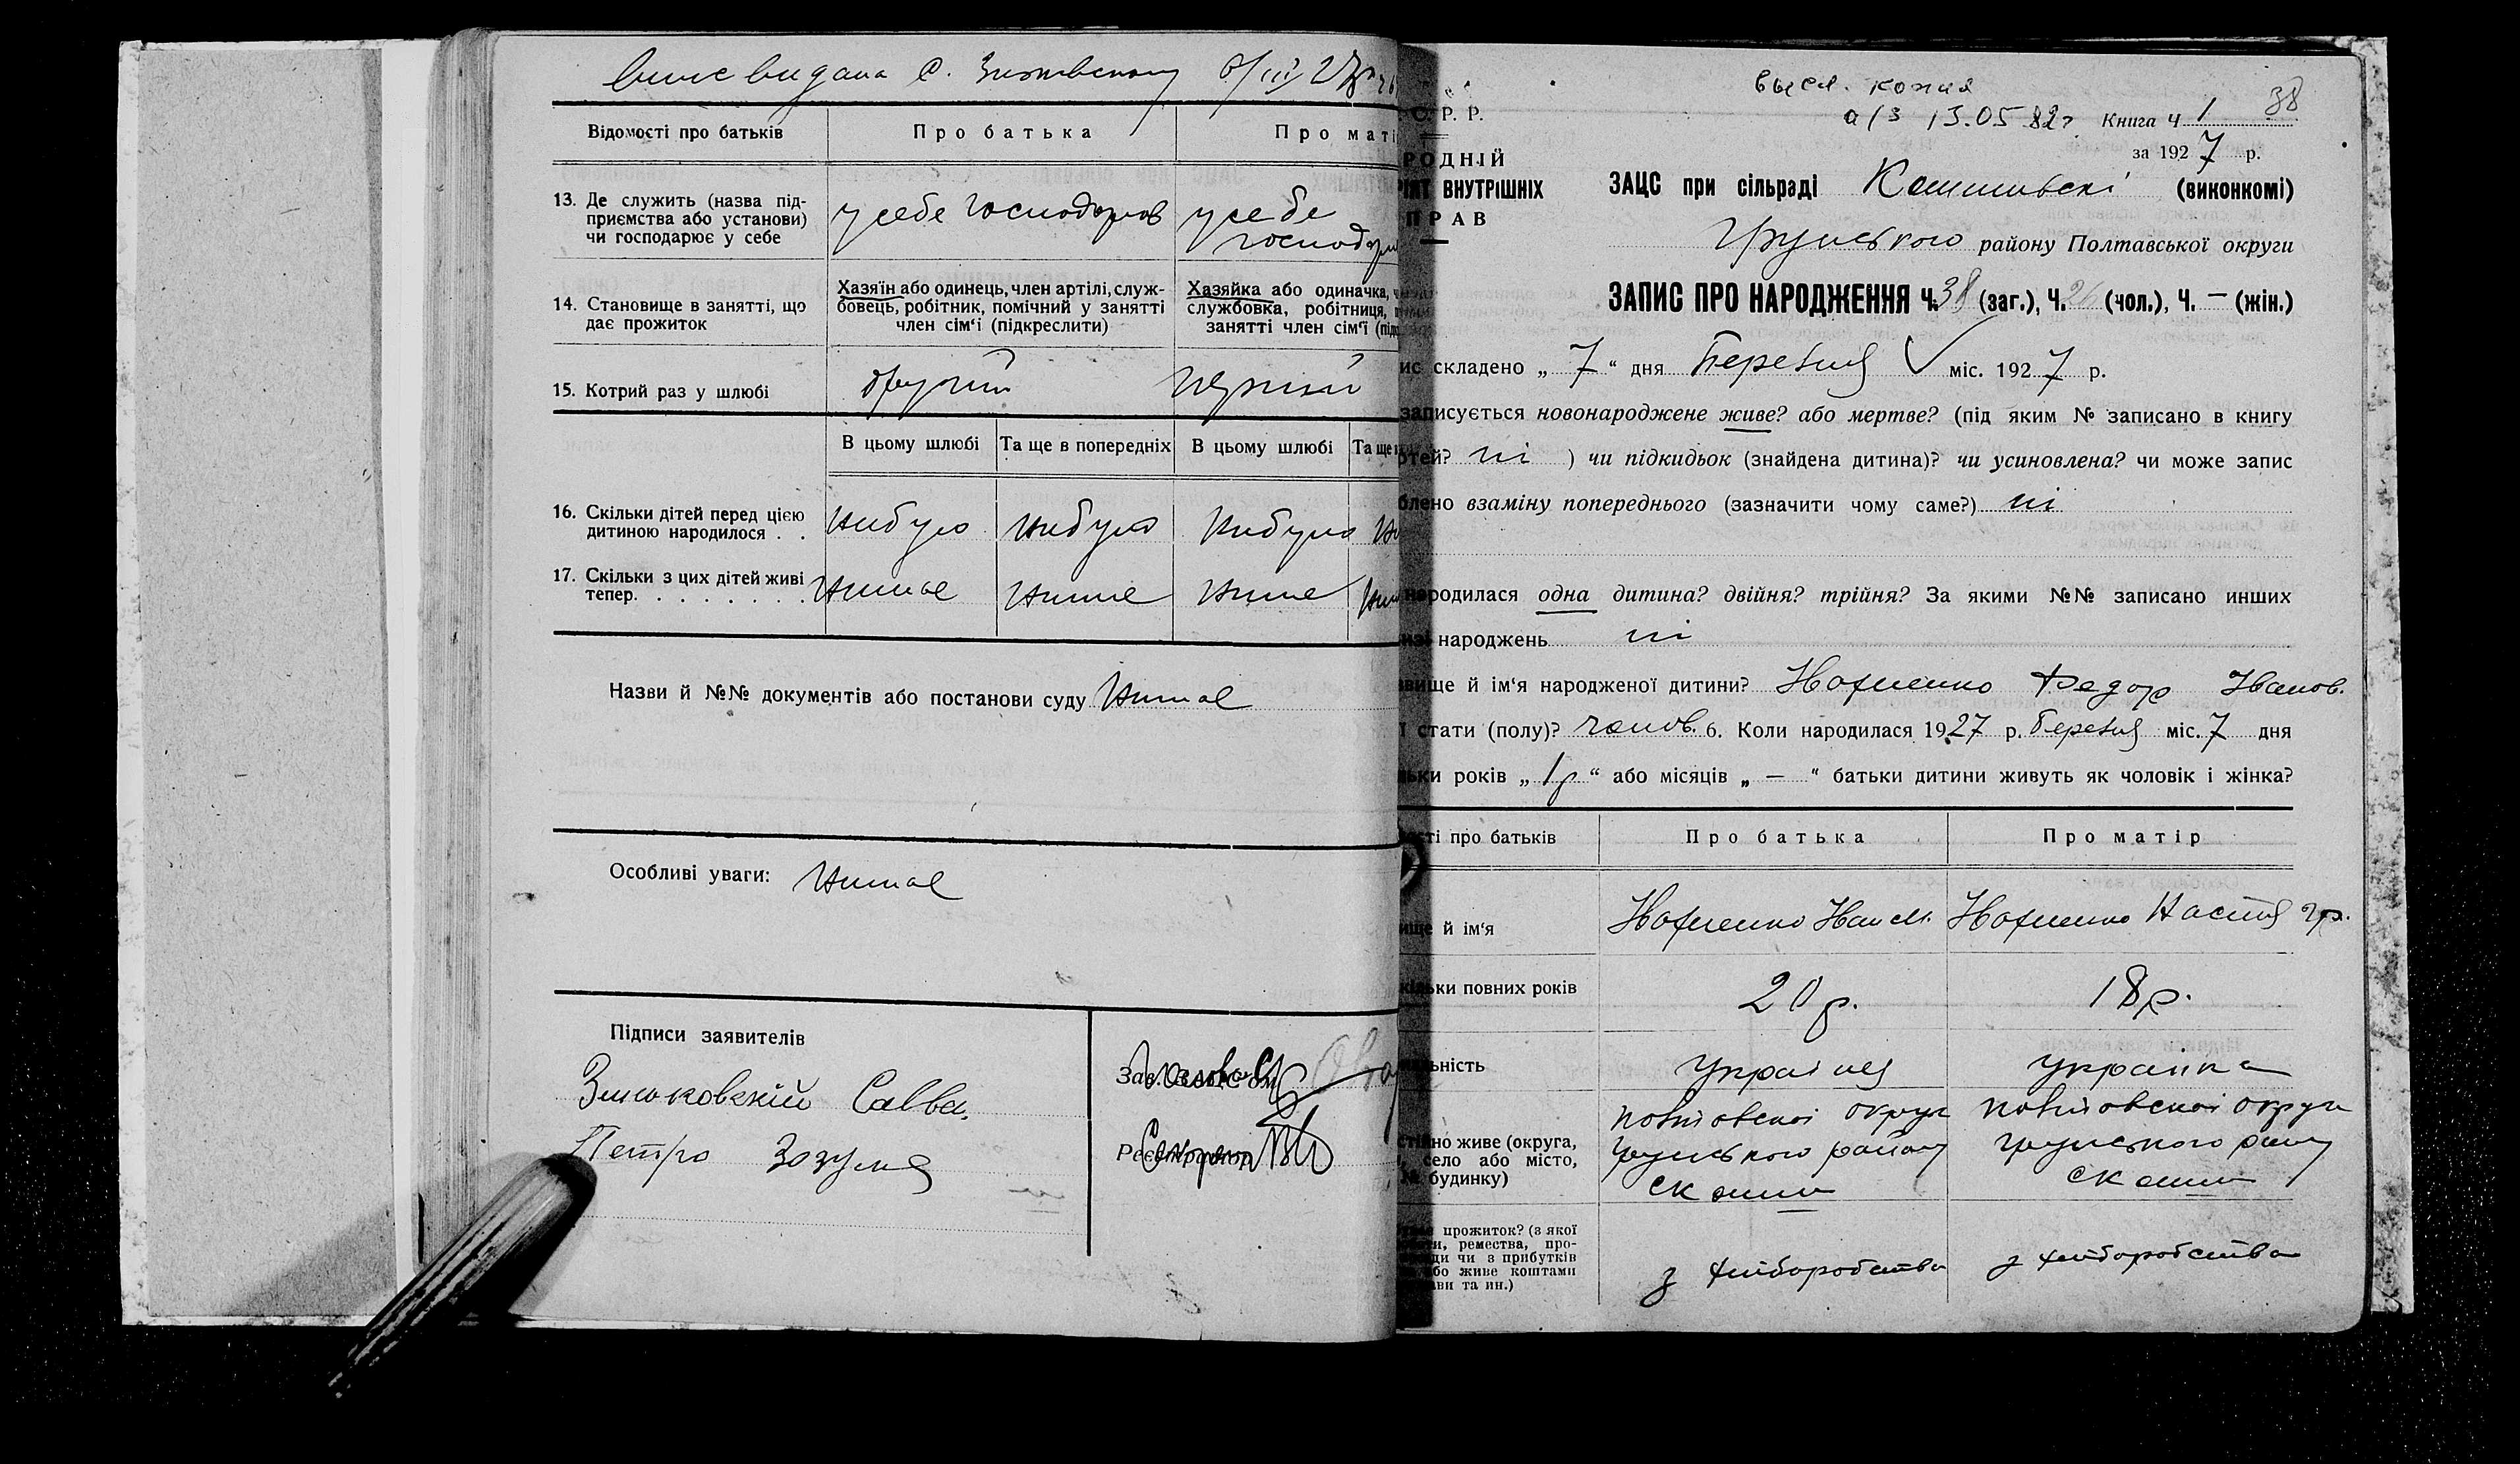 Випис видана С. Зиньківському 8/III 27р
Відомості про батьків
Про батька
Про маті
13. Де служить (назва під-
приємства або установи)
чи господарює у себе
у себе господарюв
у себе
господарю
14. Становище в занятті, що
дає прожиток
Хазяїн або одинець, член артілі, служ-
бовець, робітник, помічний у занятті
член сім'ї (підкреслити)
Хазяйка або одиначка,
службовка, робітниця,
занятті член сім'ї
15. Котрий раз у шлюбі
другий
перший
В цьому шлюбі
Та ще в попередніх
В цьому шлюбі
Та ще
16. Скільки дітей перед цією
дитиною народилося . .
небуло
небуло
небуло
17. Скільки з цих дітей живі
тепер. . . . . . . .
нимае
нимае
нимае
Назви й №№ документів або постанови суду нимае
Особливі уваги: нимае
Підписи заявителів
Зиньковскій Савва.
Петро Зозуля
Зав. ЗАЦС'ом
Голова
Реєстратор
Секретар
высл. копия
а/з 13.05.82г
38
Книга ч 1
за 1927 р.
С. Р. Р.
РОДНІЙ
ВНУТРІШНІХ
ПРАВ
ЗАЦС при сільраді (виконкомі)
Грунського району Полтавської округи
ЗАПИС ПРО НАРОДЖЕННЯ Ч. 38 (заг.), Ч. 26 (чол.), Ч. — (жін.)
складено „ 7 “ дня Березня міс. 1927 р.
записується новонароджене живе? або мертве? (під яким № записано в книгу
ні ) чи підкидьок (знайдена дитина)? чи усиновлена? чи може запис
взаміну попереднього (зазначити чому саме?) ні
народилася одна дитина? двійня? трійня? За якими №№ записано инших
народжень ні
й ім'я народженої дитини? Федор Іванов.
стати (полу)? чолов. 6. Коли народилася 1927 р. Березня міс. 7 дня
років „ 1р “ або місяців „ — “ батьки дитини живуть як чоловік і жінка?
про батьків
Про батька
Про матір
й ім'я
Іван М.
Настя Гр.
повних років
20 р.
18 р.
Українец
Українка
живе (округа,
село або місто,
будинку)
округи
Грунського району
округи
Грунського рану
прожиток? (з якої
ремества, про-
чи з прибутків
або живе коштами
та ин.)
з хліборобства
з хліборобства